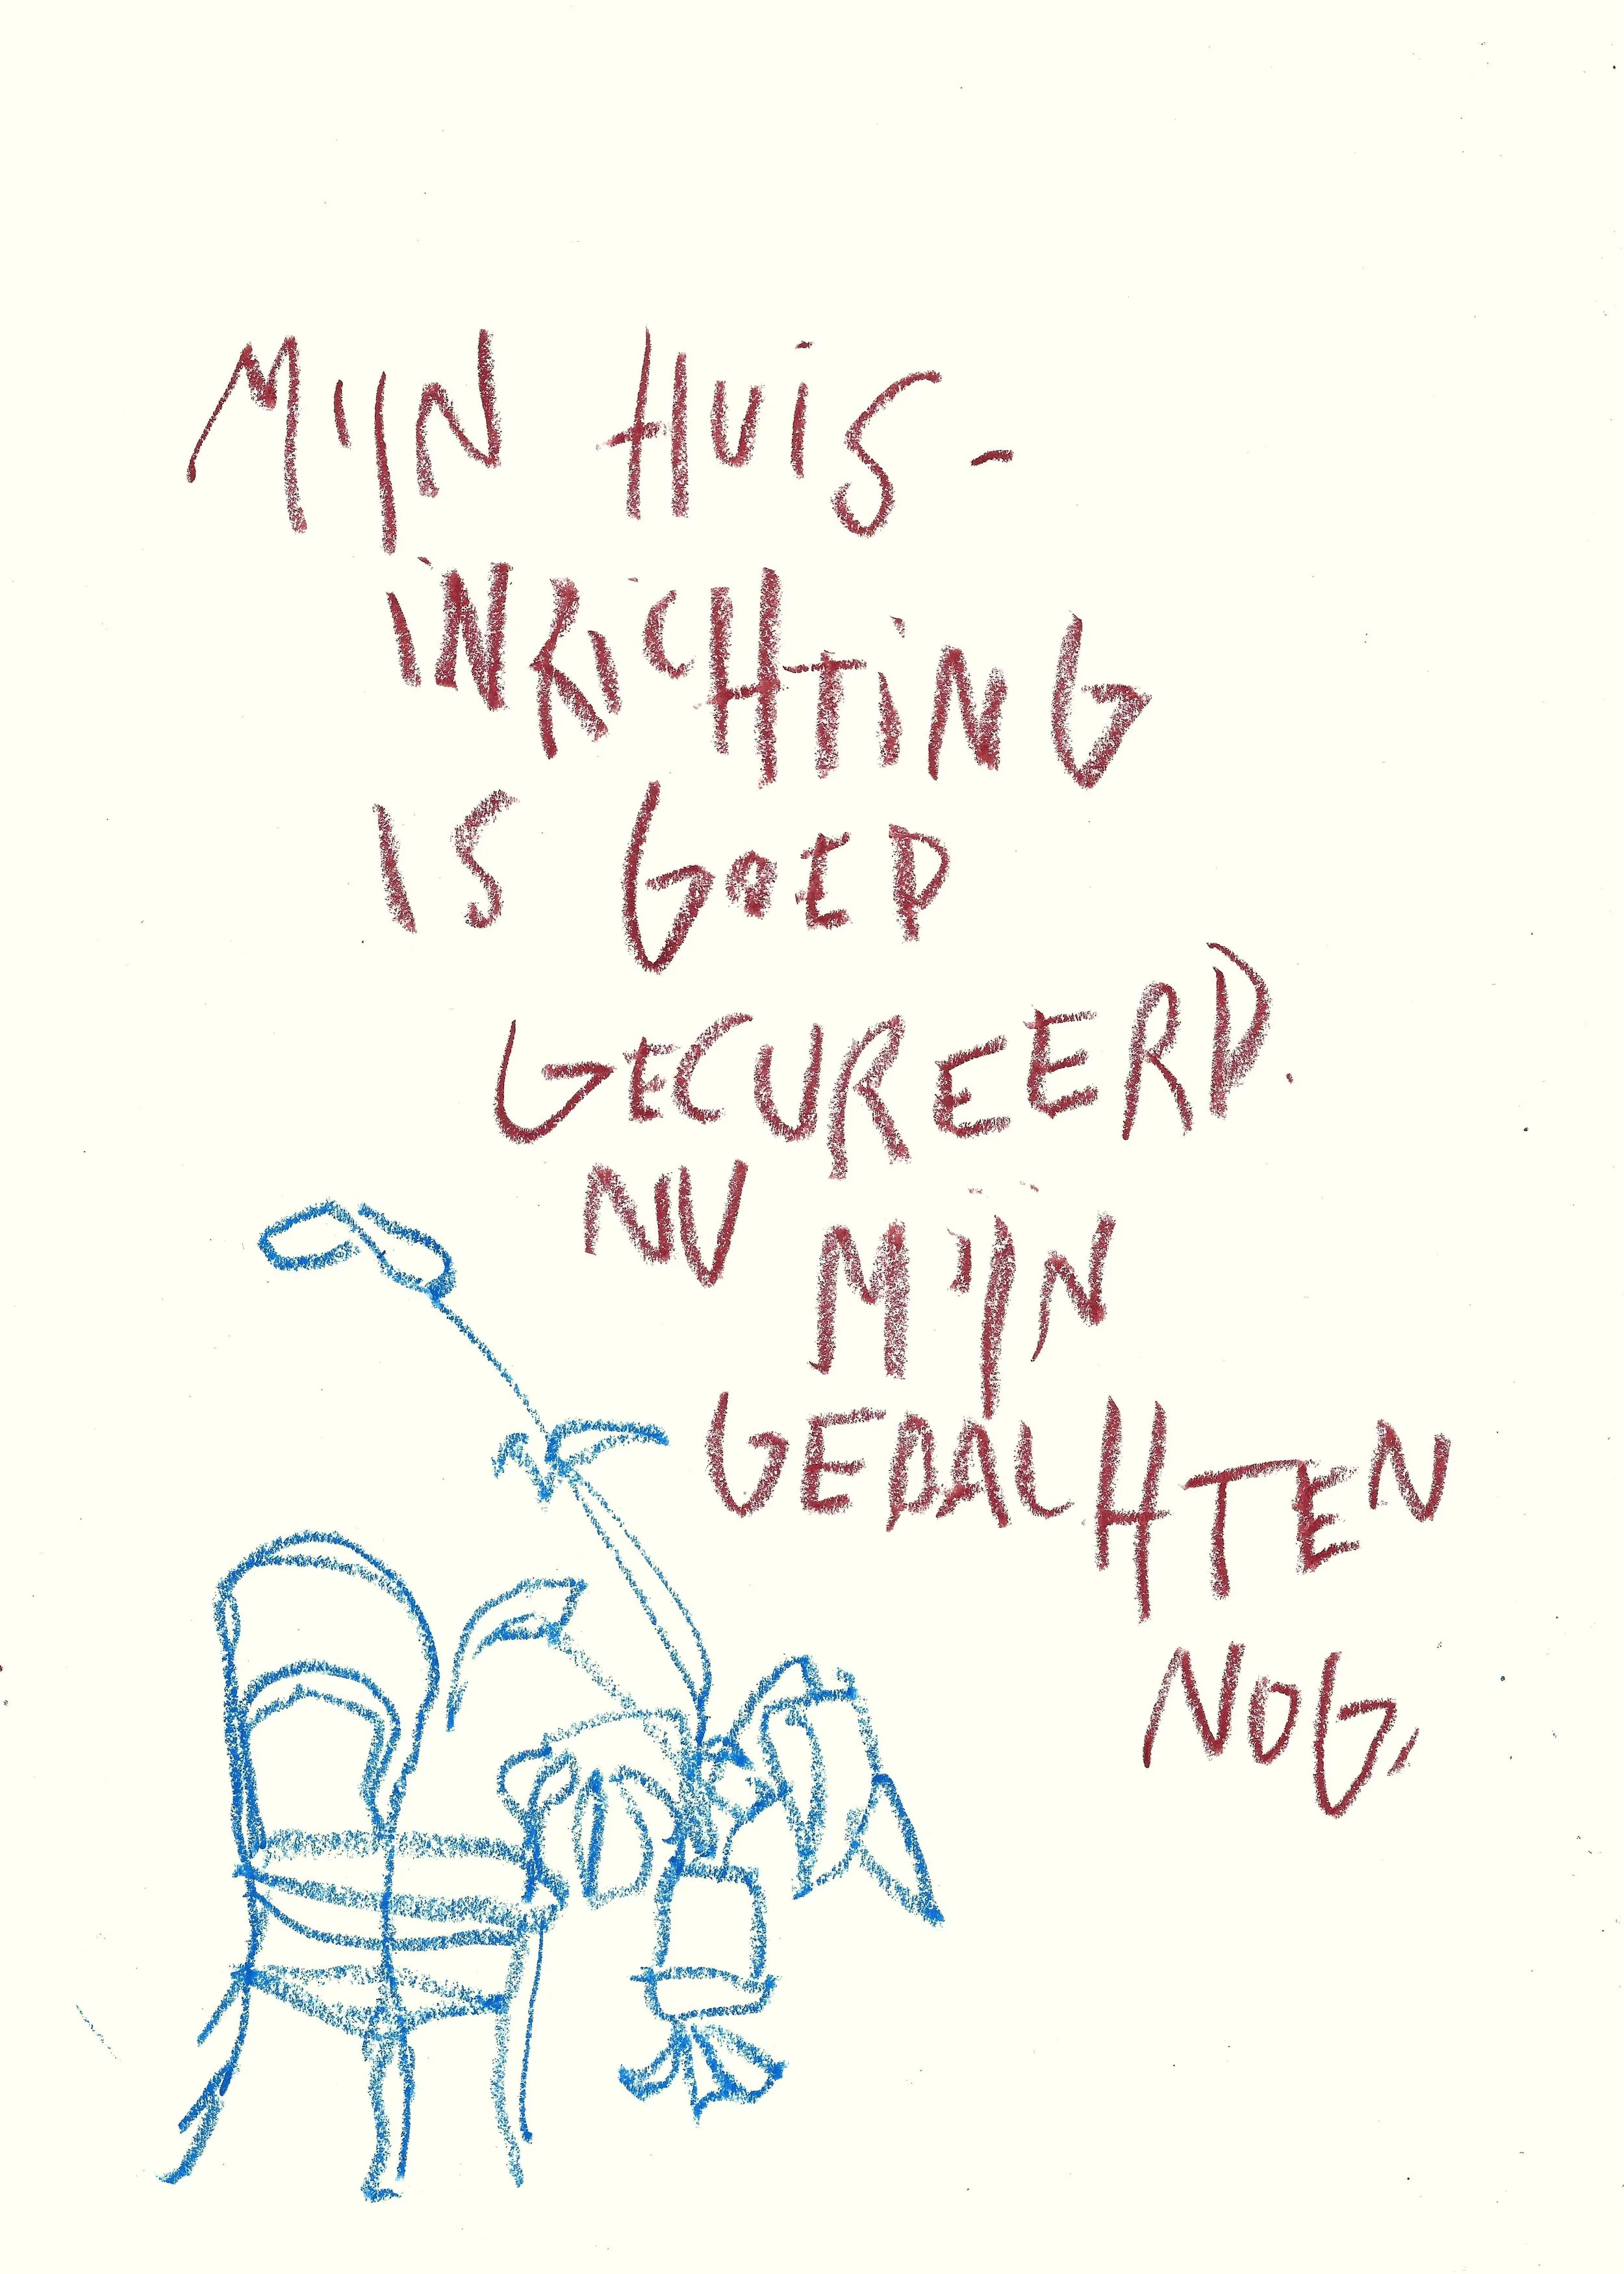 MIJN HUIS-
INRICHTING
IS GOED
GECUREERD.
NU MIJN
GEDACHTEN
NOG.